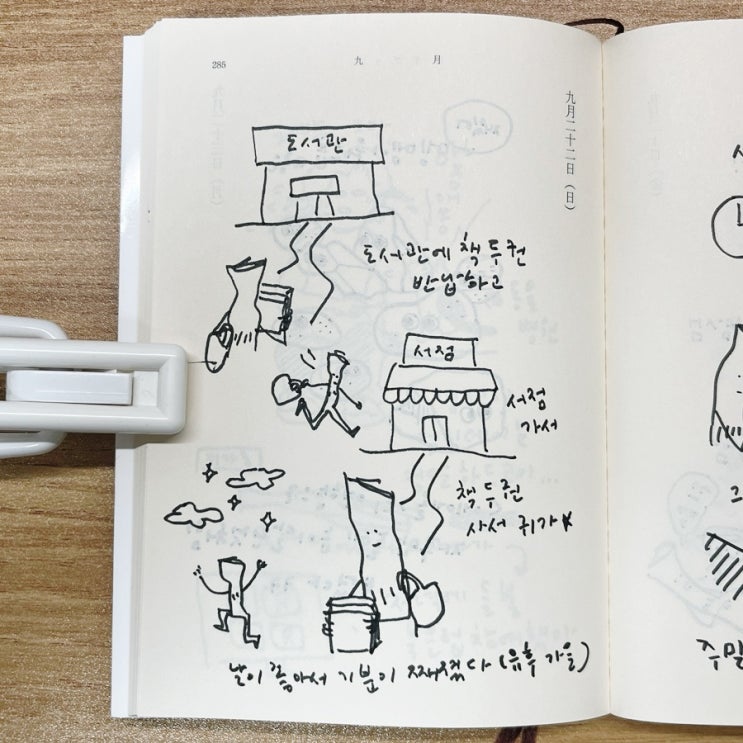 285
九 月
九月二十二日(日)
도서관
도서관에 책 두권
반납하고
서점
서점
가서
책 두권
사서 귀가
날이 좋아서 기분이 째졌다 (유후 가을)
사
그
주말